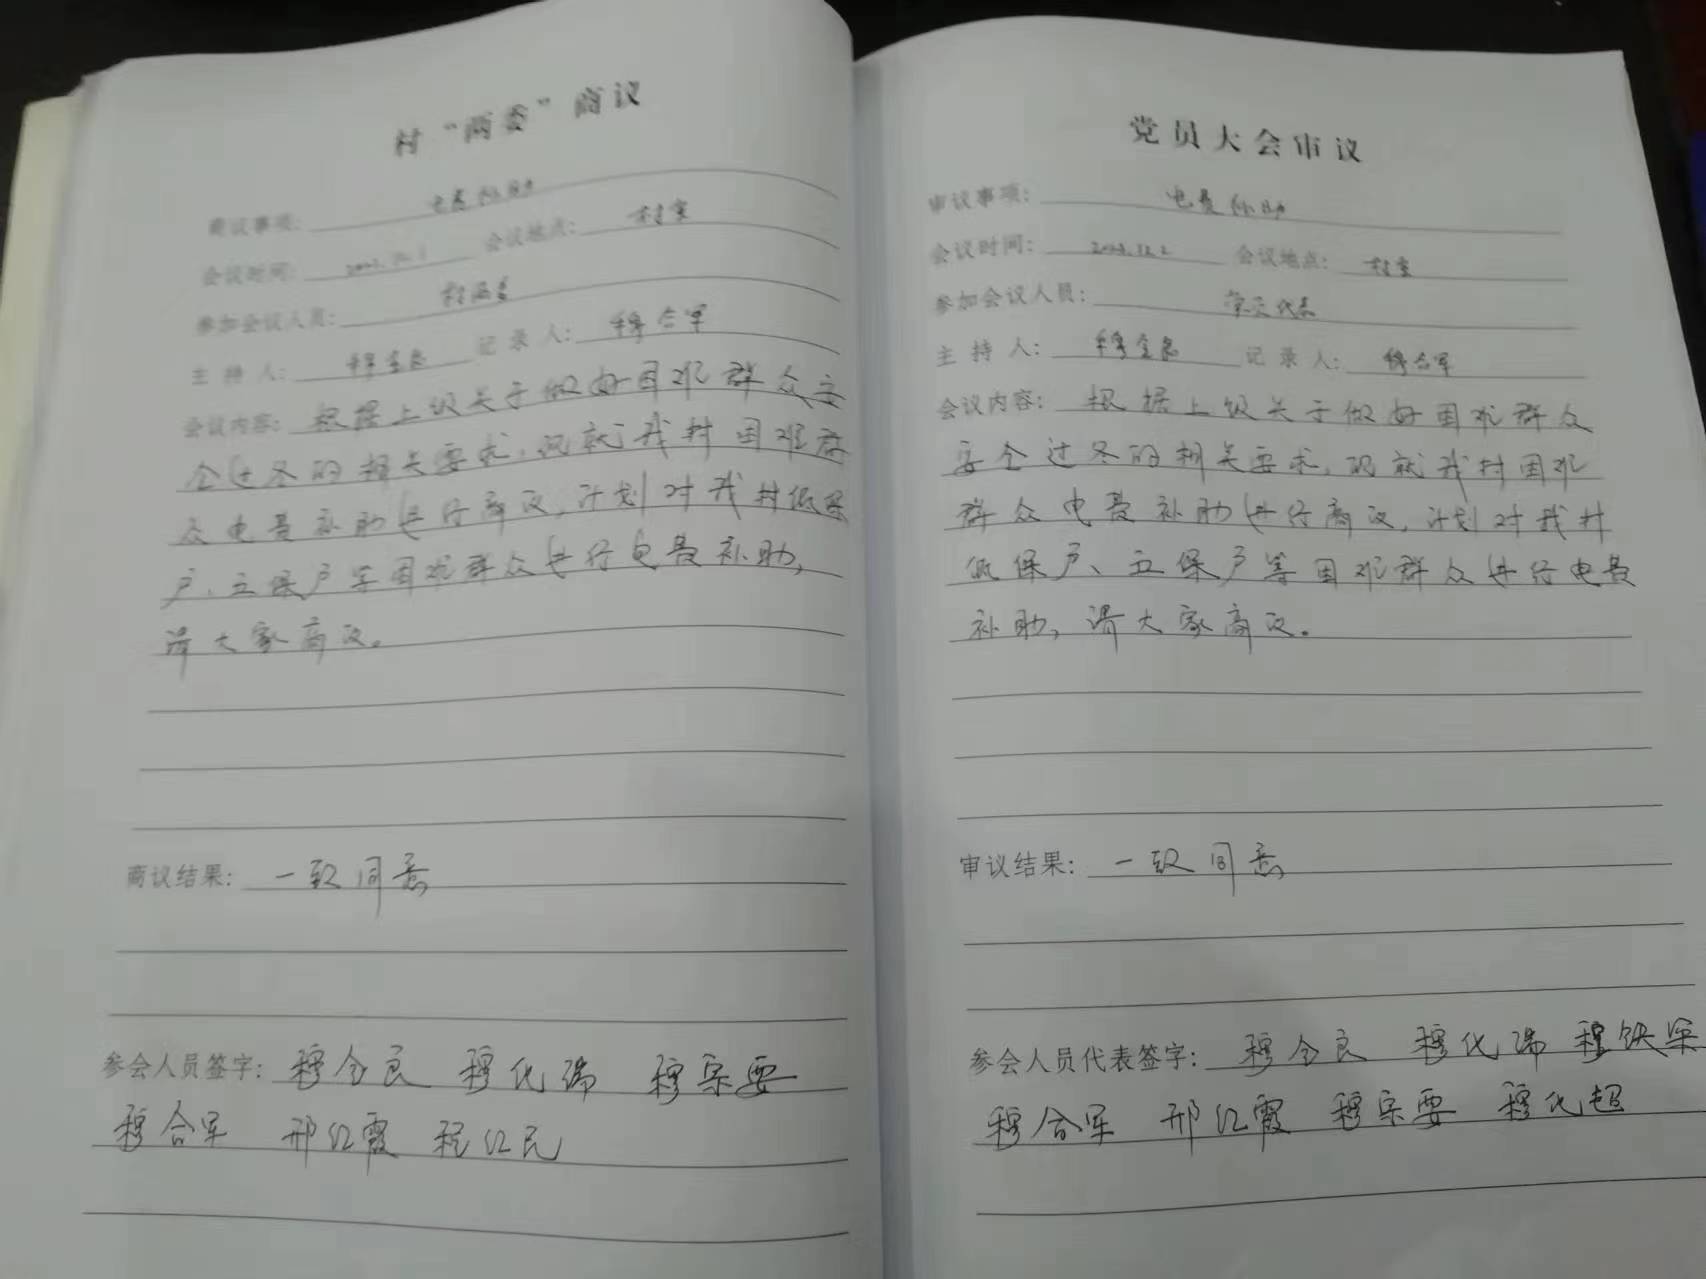 村“两委”商议
商议事项： 电费补助
会议时间： 会议地点： 村室
参加会议人员： 村两委
主持人： 穆全良 记录人： 穆合军
会议内容： 根据上级关于做好困难群众安
全过冬的相关要求，现就我村困难群
众电费补助进行商议，计划对我村低保
户、五保户等困难群众进行电费补助，
请大家商议。
商议结果： 一致同意
参会人员签字： 穆全良 穆化瑞 穆宗要
穆合军 邢红霞 程红民
党员大会审议
审议事项： 电费补助
会议时间： 会议地点： 村室
参加会议人员： 党员代表
主持人： 穆全良 记录人： 穆合军
会议内容： 根据上级关于做好困难群众
安全过冬的相关要求，现就我村困难
群众电费补助进行商议，计划对我村
低保户、五保户等困难群众进行电费
补助，请大家商议。
审议结果： 一致同意
参会人员代表签字： 穆全良 穆化瑞 穆铁栄
穆合军 邢红霞 穆宗要 穆化超